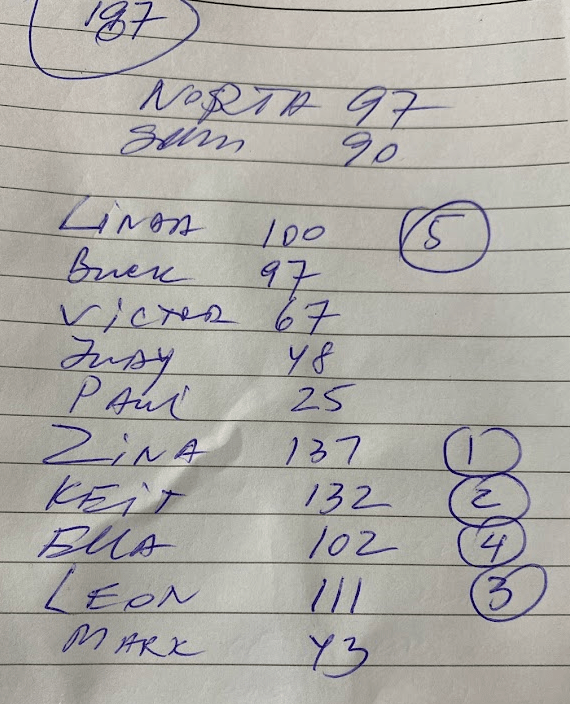 187
NORTA 97
Sam 90
LINDA 100 5
Buck 97
VICTOR 67
JUDY 48
PAUL 25
ZINA 137 1
KEIT 132 2
ELLA 102 4
LEON 111 3
MARK 43